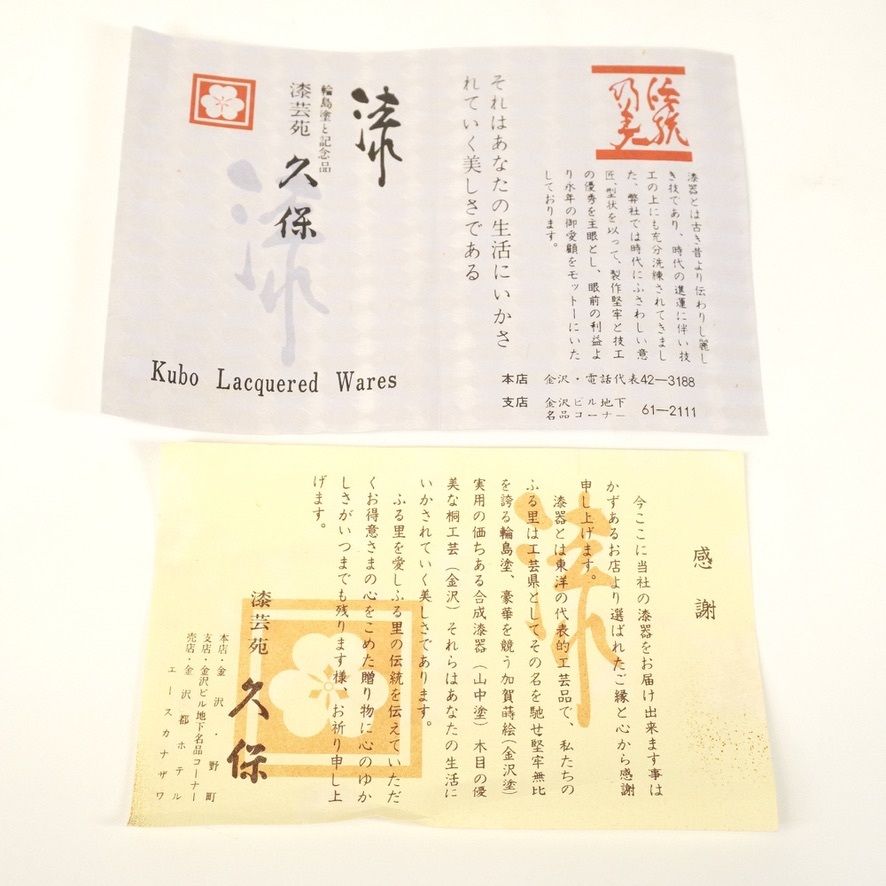 伝統
乃美
漆器とは古き昔より伝わりし麗し
き技であり、時代の進運に伴い技
工の上にも充分洗練されてきまし
た、弊社では時代にふさわしい意
匠、型状を以って、製作堅牢と技工
の優秀を主眼とし、眼前の利益よ
り永年の御愛顧をモットーにいた
しております。
本店 金沢・電話代表42―3188
支店 金沢ビル地下名品コーナー 61―2111
それはあなたの生活にいかさ
れていく美しさである
漆
輪島塗と記念品
漆芸苑 久保
漆
Kubo Lacquered Wares
感謝
今ここに当社の漆器をお届け出来ます事は
かずあるお店より選ばれたご縁と心から感謝
申し上げます。
漆器とは東洋の代表的工芸品で、私たちの
ふる里は工芸県としてその名を馳せ堅牢無比
を誇る輪島塗、豪華を競う加賀蒔絵(金沢塗)
実用の価ちある合成漆器(山中塗)木目の優
美な桐工芸(金沢)それらはあなたの生活に
いかされていく美しさであります。
ふる里を愛しふる里の伝統を伝えていただ
くお得意さまの心をこめた贈り物に心のゆか
しさがいつまでも残ります様、お祈り申し上
げます。
漆
漆芸苑 久保
本店・金沢・野町
支店・金沢ビル地下名品コーナー
売店・金沢都ホテル
エースカナザワ